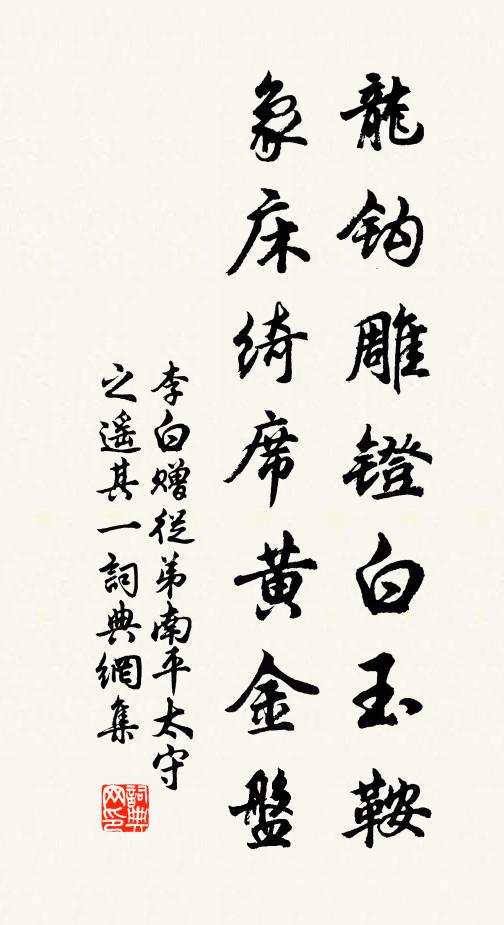 龍鈎雕鐙白玉鞍
象床綺席黃金盤
李白贈從弟南平太守
之遙其一詞典網集